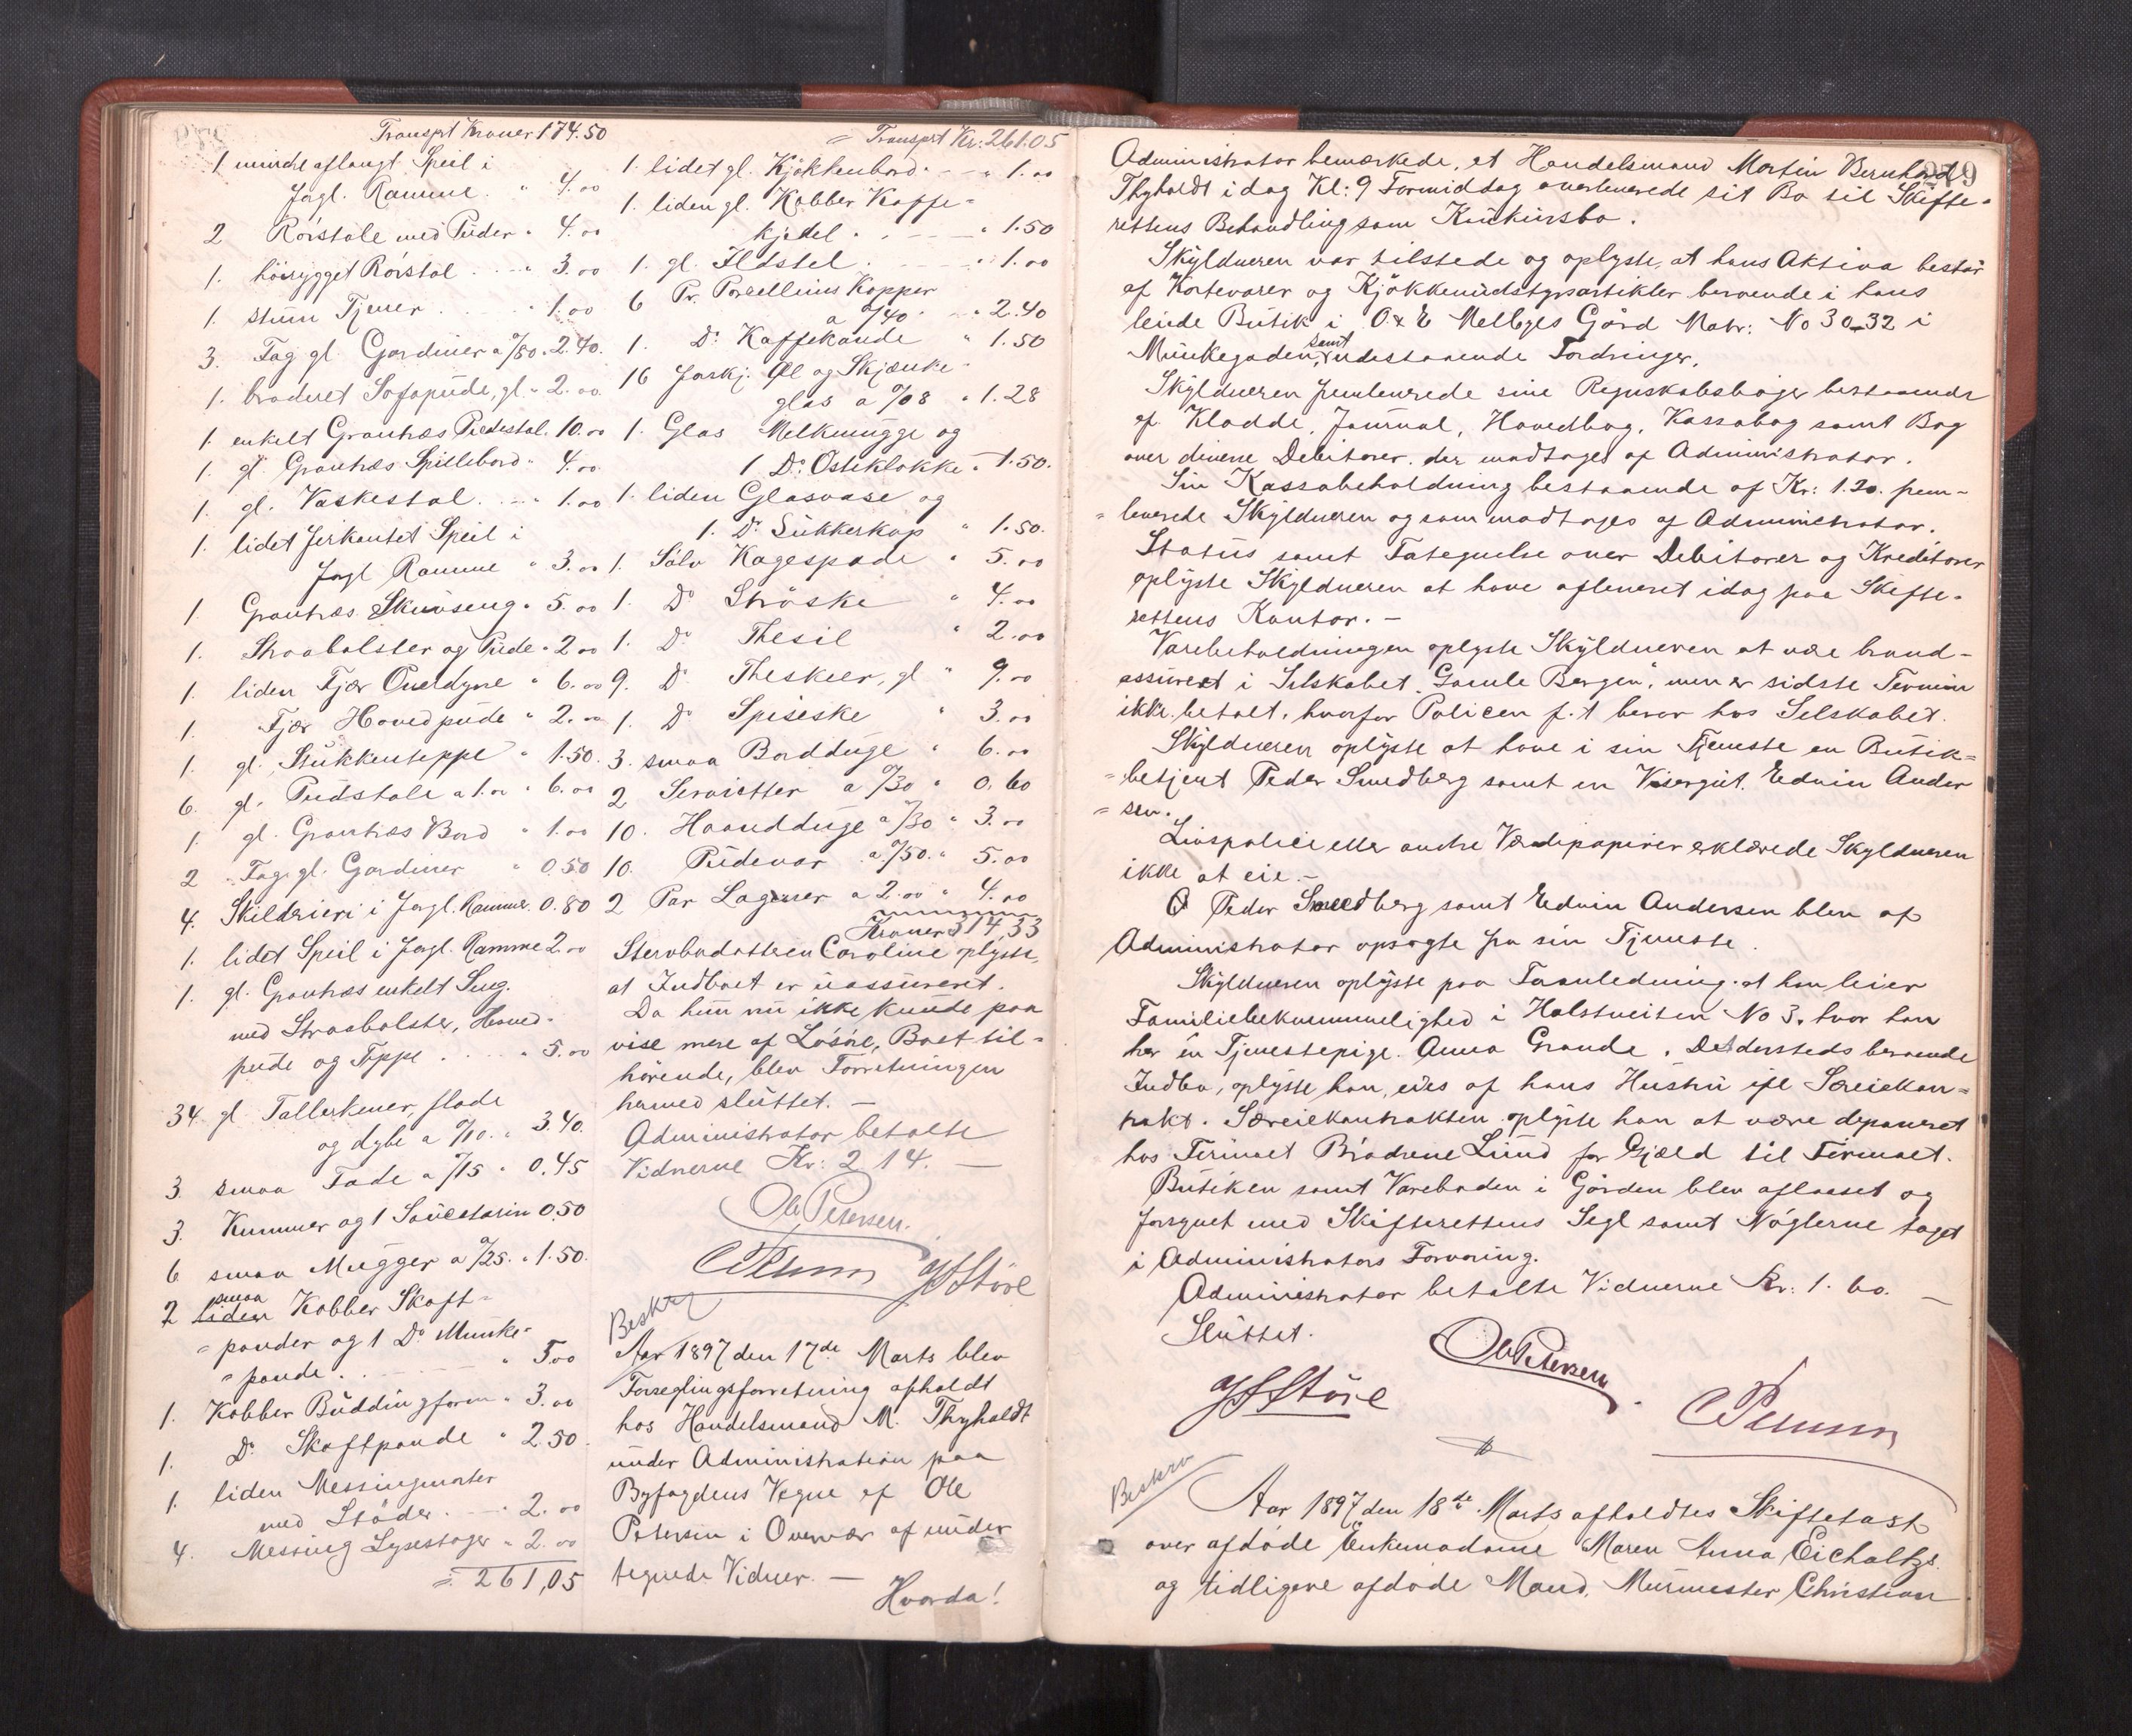 Transprt Kroner 174.50
1 mindre aflangt Speil i
forgl. Ramme. " 4.00
2 Rörstole med Puder " 4.00
1. höirygget Rörstol . . . " 3.00
1. stum Tjener . . . " 1.00
3. Fag gl. Gardiner a 0/80 " 2.40.
1. broderet Sofapude, gl. " 2.00
1. enkelt Grantræs Piedestal. 10.00
1. gl. Grantræs Spillebord " 4.00
1. gl. Vaskestol . . . " 1.00
1. lidet firkantet Speil i
forgl Ramme " 3.00
1. Grantræs Skuvseng " 5.00
1. Straabolster og Pude " 2.00
1. liden Fjær Overdyne " 6.00
1. Fjær Hovedpude " 2.00
1. gl. Stukkenteppe " 1.50.
6. gl. Pudstole a 1.00 " 6.00
1. gl. Grantræs Bord " 1.00
2 Fag gl. Gardiner " 0.50
4. Skilderier i forgl. Rammer. 0.80
1. lidet Speil i forgl. Ramme 2.00
1. gl. Grantræs enkelt Seng.
med Straabolster, Hoved-
pude og Teppe . . . " 5.00
34. gl Tallerkener, flade
og dybe a 0/10. " 3.40.
3. smaa Fade a 0/15 " 0.45
3. Kummer og 1 Sauceterin 0.50
6 smaa Mugger a 0/25. " 1.50.
2 smaa liden Kobber Skaft-
= pander og 1 Do Munke-
= pande . . " 5.00
1. Kobber Buddingform " 3.00
1. Do Skaftpande " 2.50.
1. liden Messingmorter
med Stöder . . . " 2.00
4. Messing Lysestager " 2.00
= 261,05
= Transprt Kr. 261.05
1. lidet gl. Kjökkenbord . - " 1.00
1. liden gl. Kobber Kaffe=
kjedel . . - " 1.50
1. gl. Ildstel . - " 1.00
6 Pr. Porcellins Kopper
a 0/40 . - " 2.40
1. Do Kaffekande " 1.50
16 forskj. Øl og Skjænke-
glas a 0/08 " 1.28
1. Glas Melkmugge og
1 Do Osteklokke " 1.50.
1. liden Glasvase og
1. Do Sukkerkop " 1.50.
1. Sölv Kagespade " 5.00
1. Do Ströske " 4.00
1. Do Thesil " 2.00
9. Do Theskeer, gl " 9.00
1. Do Spiseske " 3.00
3. smaa Bordduge " 6.00
2 Servietter a 0/30 " 0.60
10. Haandduge a 0/30 " 3.00
10. Pudevar a 0/50. " 5.00
2 Par Lagener a 2.00 " 4.00
Kroner 314,33
Stervbodatteren Caroline oplyste,
at Indboet er uassureret.
Da hun nu ikke kunde paa
vise mere af Lösöre, Boet til-
hörende, blev Forretningen
hermed sluttet. —
Administrator betalte
Vidnerne Kr: 2 14. —
Ole Petersen.
Beskr
Aar 1897 den 17de Marts blev
Forseglingsforretning afholdt
hos Handelsmand M. Thyholdt
under Administration paa
Byfogdens Vegne af Ole
Petersen i Overvær af under
tegnede Vidner. —
Hvorda!
279
Administrator bemærkede, at Handelsmand Martin Bernhard
Thyholdt idag Kl: 9 Formiddag overleverede sit Bo til Skifte-
rettens Behandling som Konkursbo.
Skyldneren var tilstede og oplyste, at hans Aktiva består
af Kortevarer og Kjökkenudstyrsartikler beroende i hans
leiede Butik i O. & E Melbyes Gård Matr: No 30-32 i
Munkegaden, samt udestaaende Fordringer.
Skyldneren fremleverede sine Regnskabsböger bestaaende
af Kladde, Journal, Hovedbog, Kassabog samt Bog
over diverse Debitorer. der modtages af Administrator.
Sin Kassabeholdning bestaaende af Kr: 1.20. frem-
= leverede Skyldneren og som modtoges af Administrator.
Status samt Fortegnelse over Debitorer og Kreditorer
oplyste Skyldneren at have afleveret idag paa Skifte-
rettens Kontor. —
Varebeholdningen oplyste Skyldneren at være brand-
assureret i Selskabet "Gamle Bergen", men er sidste Termin
ikke betalt, hvorfor Policen f. t. beror hos Selskabet.
Skyldneren oplyste at have i sin Tjeneste en Butik-
= betjent Peder Smedberg samt en Visergut. Edvin Ander
= sen.
Livspolice eller andre Værdipapirer erklærede Skyldneren
ikke at eie. —
Peder Smedberg samt Edvin Andersen blev af
Administrator opsagte fra sin Tjeneste.
Skyldneren oplyste paa Foranledning at han leier
Familiebekvemmelighed i Halstveiten No 3. hvor han
har en Tjenestepige. Anna Grande. Det dersteds beroende
Indbo, oplyste han, eies af hans Hustru ifl Særeiekon-
trakt. Særeiekontrakten oplyste han at være deponeret
hos Firmaet Brödrene Lund for Gjæld til Firmaet.
Butiken samt Vareboden i Gården blev aflaaset og
forsynet med Skifterettens Segl samt Nöglerne taget
i Administrators Forvaring.
Administrator betalte Vidnerne Kr: 1. 60. —
Sluttet.
Ole Petersen
Beskrev
Aar 1897, den 18de Marts afholdtes Skiftetaxt
over afdöde Enkemadame Maren Anna Eicholtz.
og tidligere afdöde Mand, Murmester Christian